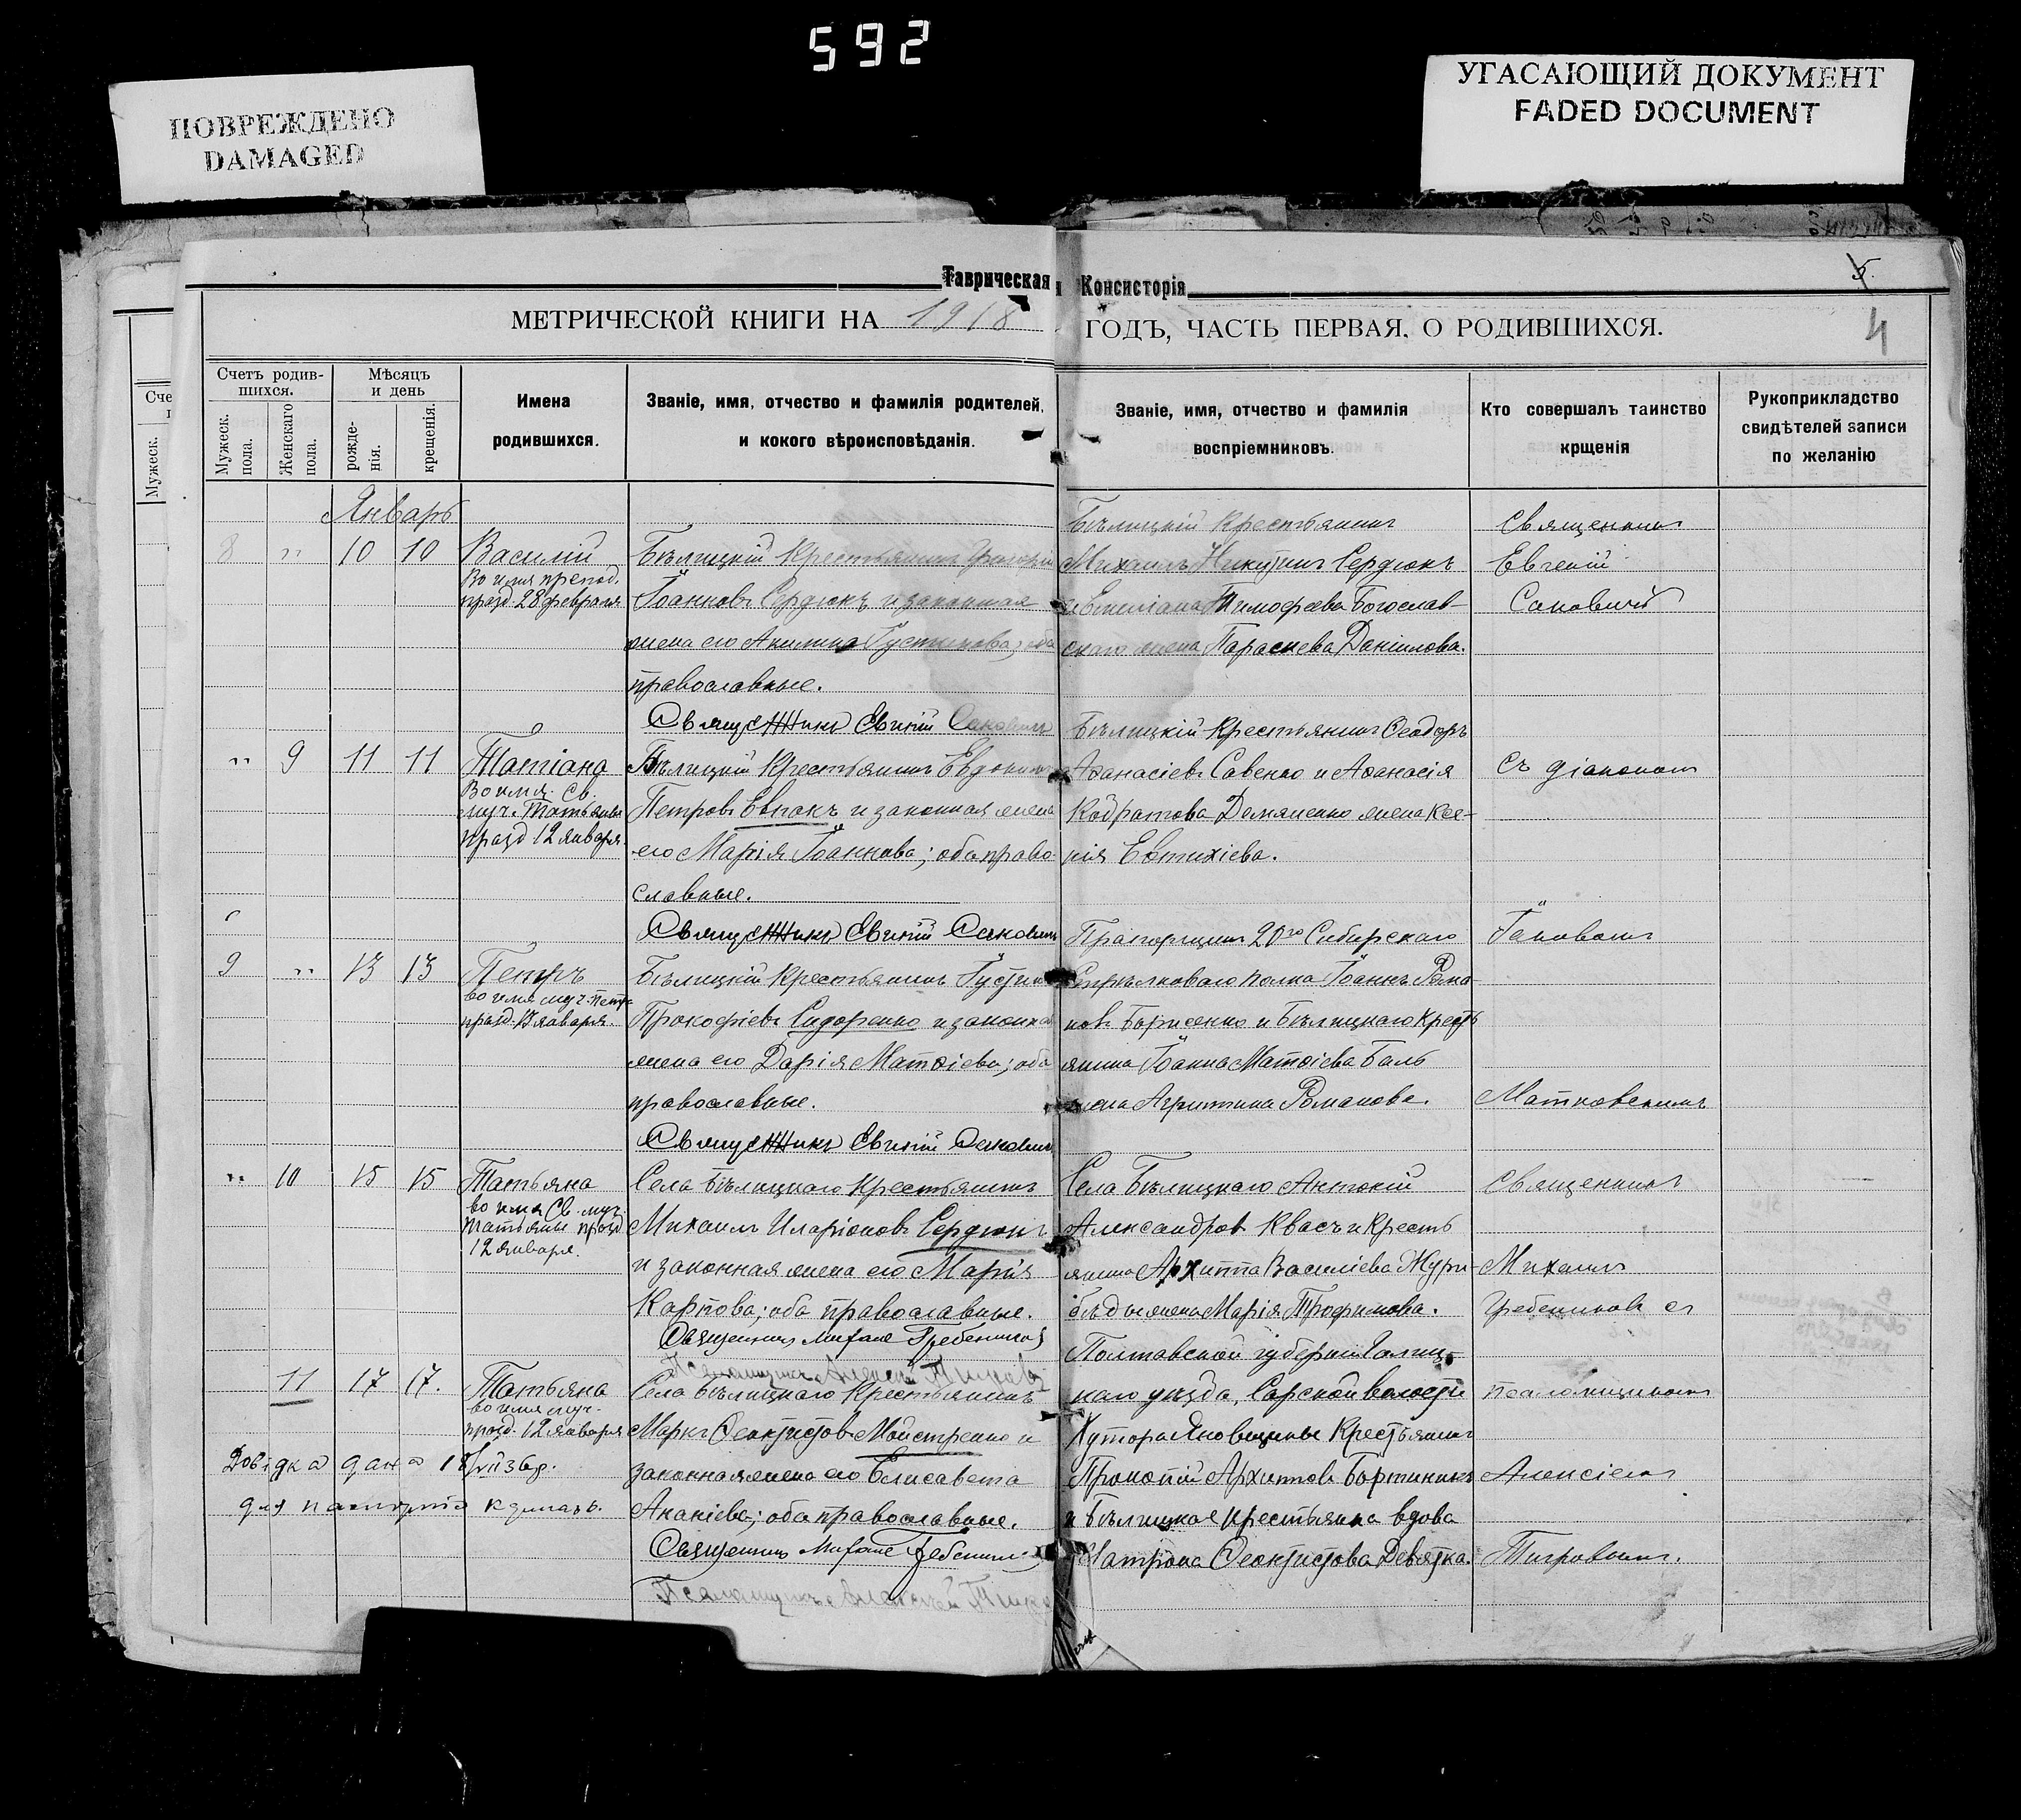 592
ПОВРЕЖДЕНО
DAMAGED
УГАСАЮЩИЙ ДОКУМЕНТ
FADED DOCUMENT
Таврическая Консисторія
5.
МЕТРИЧЕСКОЙ КНИГИ НА 1918 ГОДЪ, ЧАСТЬ ПЕРВАЯ, О РОДИВШИХСЯ.
4
Счетъ родив-
шихся.
Мужеск.
пола.
Женскаго
пола.
Мѣсяцъ
и день
рожде-
нія.
крещенія.
Имена
родившихся.
Званіе, имя, отчество и фамилія родителей,
и кокого вѣроисповѣданія.
Званіе, имя, отчество и фамилія
воспріемниковъ.
Кто совершалъ таинство
крщенія
Рукоприкладство
свидѣтелей записи
по желанію
Январь
8 " 10 10
Василій
Во имя препод.
празд. 28 февраля
Бѣлицкій крестьянинъ Григорій
Іоанновъ Сердюкъ и законная
жена его Акилина Іустинова; оба
православные.
Священникъ Евгеній Саковичъ
Бѣлицкій крестьянинъ
Михаилъ Никитинъ Сердюкъ
и Емеліана Тимофеева Богослав-
скаго жена Параскева Даніилова.
Священникъ
Евгеній
Саковичъ
" 9 11 11
Татіана
Во имя Св.
муч. Татьяны
празд 12 января.
Бѣлицкій крестьянинъ Евдокимъ
Петровъ Евпакъ и законная жена
его Марія Іоаннова; оба право-
славные.
Священникъ Евгеній Саковичъ
Бѣлицкій крестьянинъ Ѳеодоръ
Аѳанасіевъ Савенко и Аѳанасія
Кодратова Демяненко жена Ксе-
нія Евтихіева.
съ діакономъ
9 " 13 13
Петръ
во имя муч. Петра
празд. 13 января.
Бѣлицкій крестьянинъ Іустинъ
Прокофіевъ Сидоренко и законная
жена его Дарія Матѳіева; оба
православные.
Священникъ Евгеній Саковичъ
Прапорщикъ 20го Сибирскаго
Стрѣлковаго полка Іоаннъ Рома-
новъ Борисенко и Бѣлицкаго кресть
янина Іоанна Матѳіева Баль
жена Агрипина Романова.
Іаковомъ
Матковскимъ
" 10 15 15
Татьяна
во имя Св. муч.
Татьяны празд
12 января.
Села Бѣлицкаго крестьянинъ
Михаилъ Иларіоновъ Сердюкъ
и законная жена его Марія
Карпова; оба православные.
Священникъ Михаилъ Гребенниковъ
Псаломщикъ Алексѣй
Села Бѣлицкаго Антоній
Александровъ Квасъ и кресть
янина Архиппа Василіева Жури-
бѣды жена Марія Трофимова.
Священникъ
Михаилъ
Гребенниковъ съ
11 17 17.
Татьяна
во имя муч.
празд. 12 января
Села Бѣлицкаго крестьянинъ
Маркъ Ѳеоктистовъ Майстренко и
законная жена его Елисавета
Ананіева; оба православные.
Священникъ Михаилъ
Псаломщикъ Алексѣй
Полтавской губерніи
каго уѣзда, Сарской волости
Хутора Яновщины крестьянинъ
Прокопій Архиповъ Бортникъ
и Бѣлицкая крестьянка вдова
Матрона Ѳеоктистова Девятка.
псаломщикомъ
Алексіемъ
Довідка дана
для паспорта